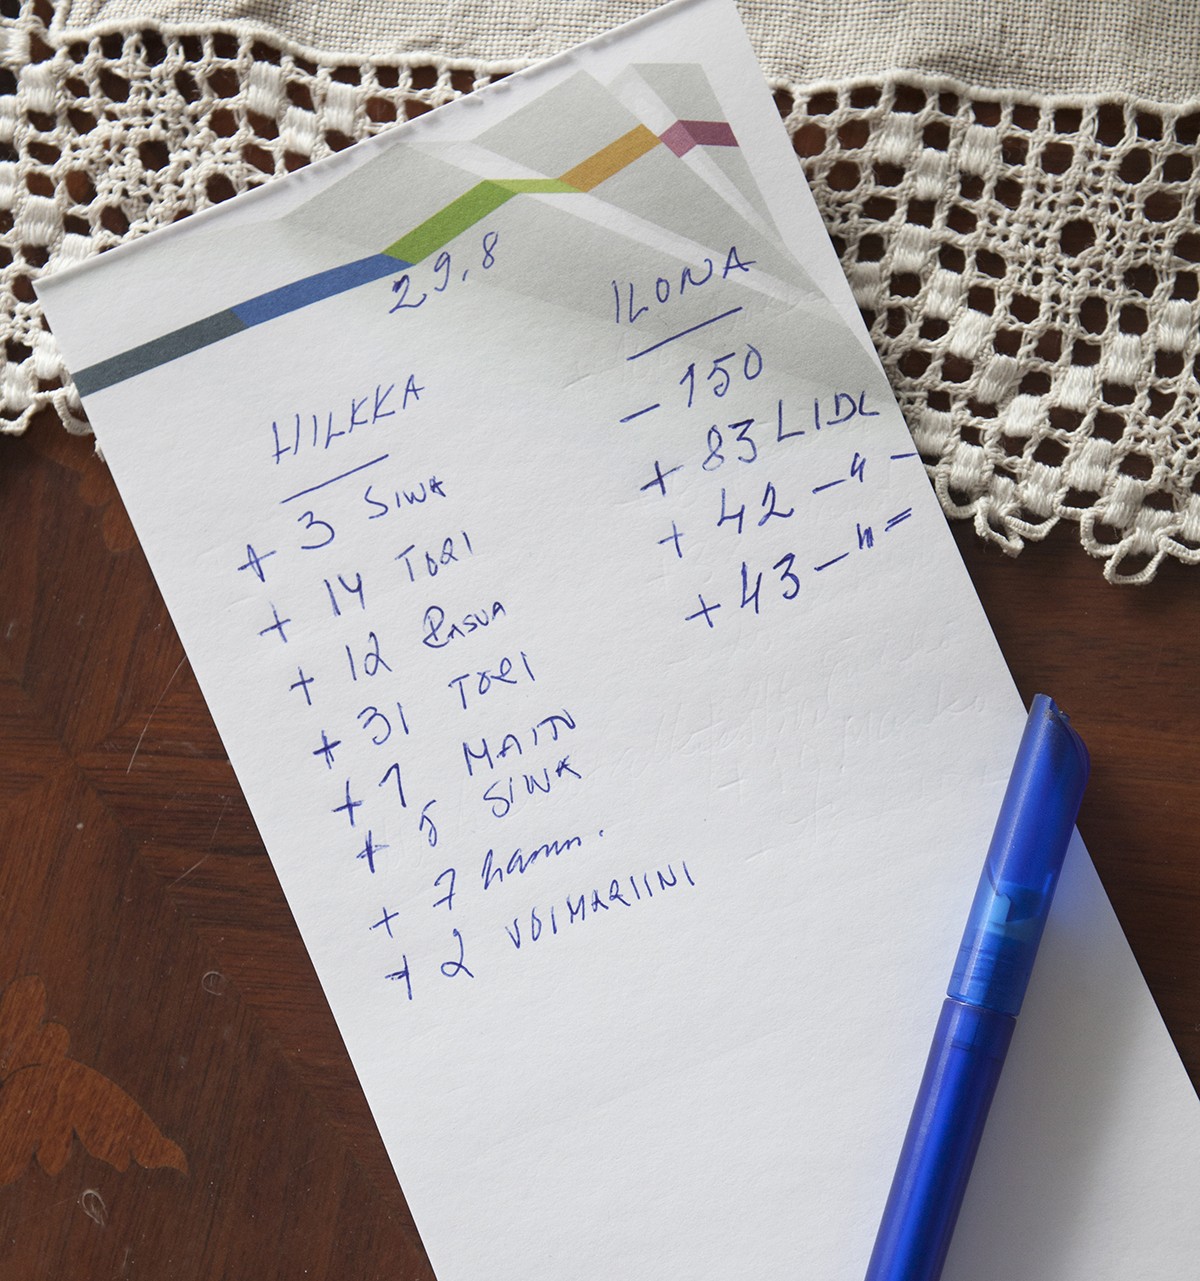 29.8
HILKKA
+ 3 SIWA
+ 14 TORI
+ 12 RASVA
+ 31 TORI
+ 7 MAITO
+ 5 SIWA
+ 7 hamm.
+ 2 VOIMARIINI
ILONA
- 150
+ 83 LIDL
+ 42 - " -
+ 43 - " =